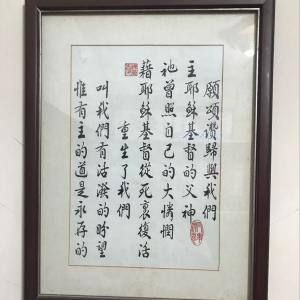 願頌讚歸與我們
主耶穌基督的父神
祂曾照自己的大憐憫
藉耶穌基督從死裏復活
重生了我們
叫我們有活潑的盼望
惟有主的道是永存的